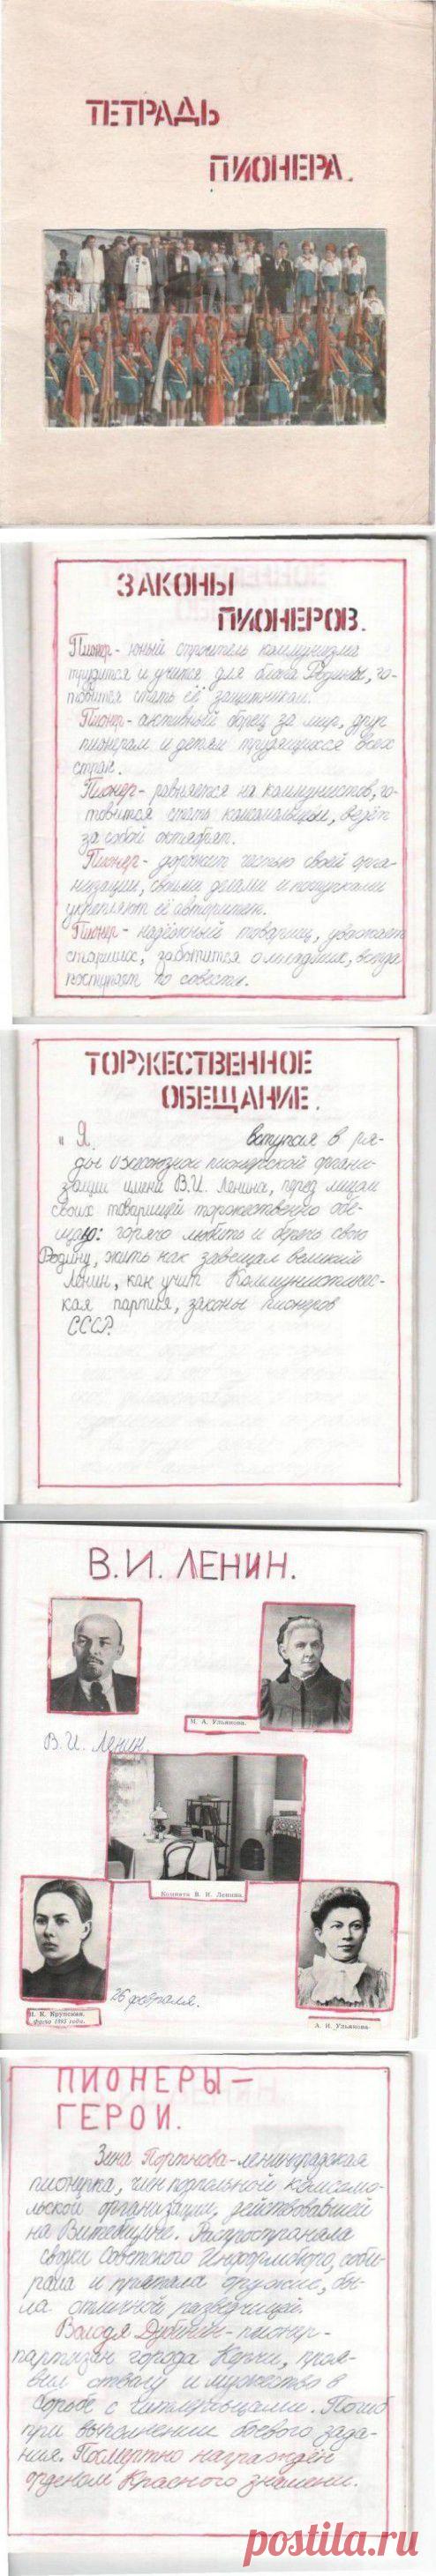 ТЕТРАДЬ
ПИОНЕРА.
ЗАКОНЫ
ПИОНЕРОВ.
Пионер - юный строитель коммунизма
трудится и учится для блага Родины, го-
товится стать её защитником.
Пионер - активный борец за мир, друг
пионерам и детям трудящихся всех
стран.
Пионер - равняется на коммунистов, го-
товится стать комсомольцем, ведёт
за собой октябрят.
Пионер - дорожит честью своей орга-
низации, своими делами и поступками
укрепляет её авторитет.
Пионер - надёжный товарищ, уважает
старших, заботится о младших, всегда
поступает по совести.
ТОРЖЕСТВЕННОЕ
ОБЕЩАНИЕ.
" Я, вступая в ря-
ды Всесоюзной пионерской органи-
зации имени В.И. Ленина, перед лицом
своих товарищей торжественно обе-
щаю: горячо любить и беречь свою
Родину, жить как завещал великий
Ленин, как учит Коммунистичес-
кая партия, законы пионеров
СССР.
В.И. ЛЕНИН.
М. А. Ульянова.
В.И. Ленин.
Комната В. И. Ленина.
Н. К. Крупская.
фото 1895 года.
26 февраля.
А. И. Ульянова.
ПИОНЕРЫ -
ГЕРОИ.
Зина Портнова - ленинградская
пионерка, член подпольной комсомо-
льской организации, действовавшей
на Витебщине. Распространяла
сводки Советского Информбюро, соби-
рала и прятала оружие, бы-
ла отличной разведчицей.
Володя Дубинин - пионер-
партизан города Керчи, проя-
вил отвагу и мужество в
борьбе с гитлеровцами. Погиб
при выполнении боевого зада-
ния. Посмертно награждён
орденом Красного знамени.
postila.ru